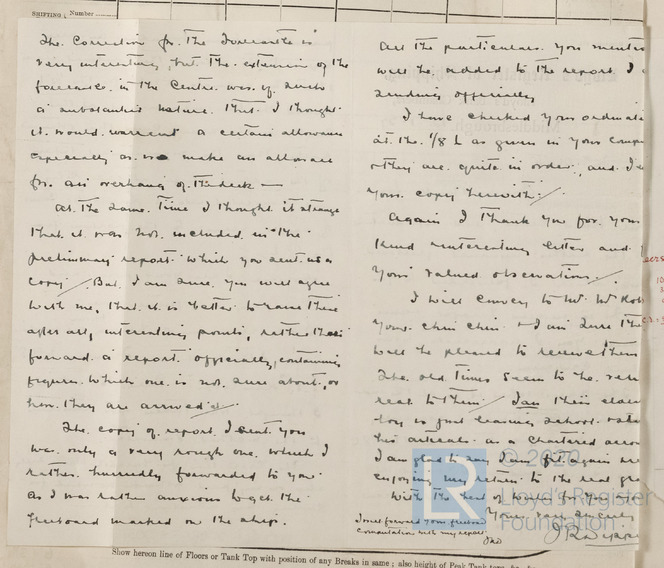 SHIFTING; Number
The Correction for the Forecastle is
very interesting, but the extension of the
forecastle in the Centre was of such
a substantial nature that I thought
it would warrant a certain allowance
especially as we make an allowance
for an overhang of the deck —
At the same time I thought it strange
that it was not included in the
preliminary report which you sent us a
copy. But I am sure you will agree
with me, that it is better to raise these
after all, interesting points, rather than
forward a report officially, containing
figures which one is not sure about, or
how they are arrived at.
The copy of report I sent you
was only a very rough one which I
rather hurriedly forwarded to you
as I was rather anxious to get the
freeboard marked on the ship.
All the particulars you mention
will be added to the report. I
sending officially
I have checked your ordinates
at the 1/8 L as given in your
& they are quite in order, and I
your copy herewith.
Again I thank you for your
kind & interesting letter and
your valued observations.
I will convey to Mr. 
your chin chin & I am sure the
will be pleased to receive them
The old times seem to be
real to them. Ian their
boy is just leaving school
his articles as a Chartered
I am glad to say I am fit again
enjoying my return to the real
With the best of wishes for
Yours very sincerely
I will forward your freeboard
computation with my report
Show hereon line of Floors or Tank Top with position of any Breaks in same; also height of Peak Tank tops,
© 2020
LR
Lloyd's Register
Foundation